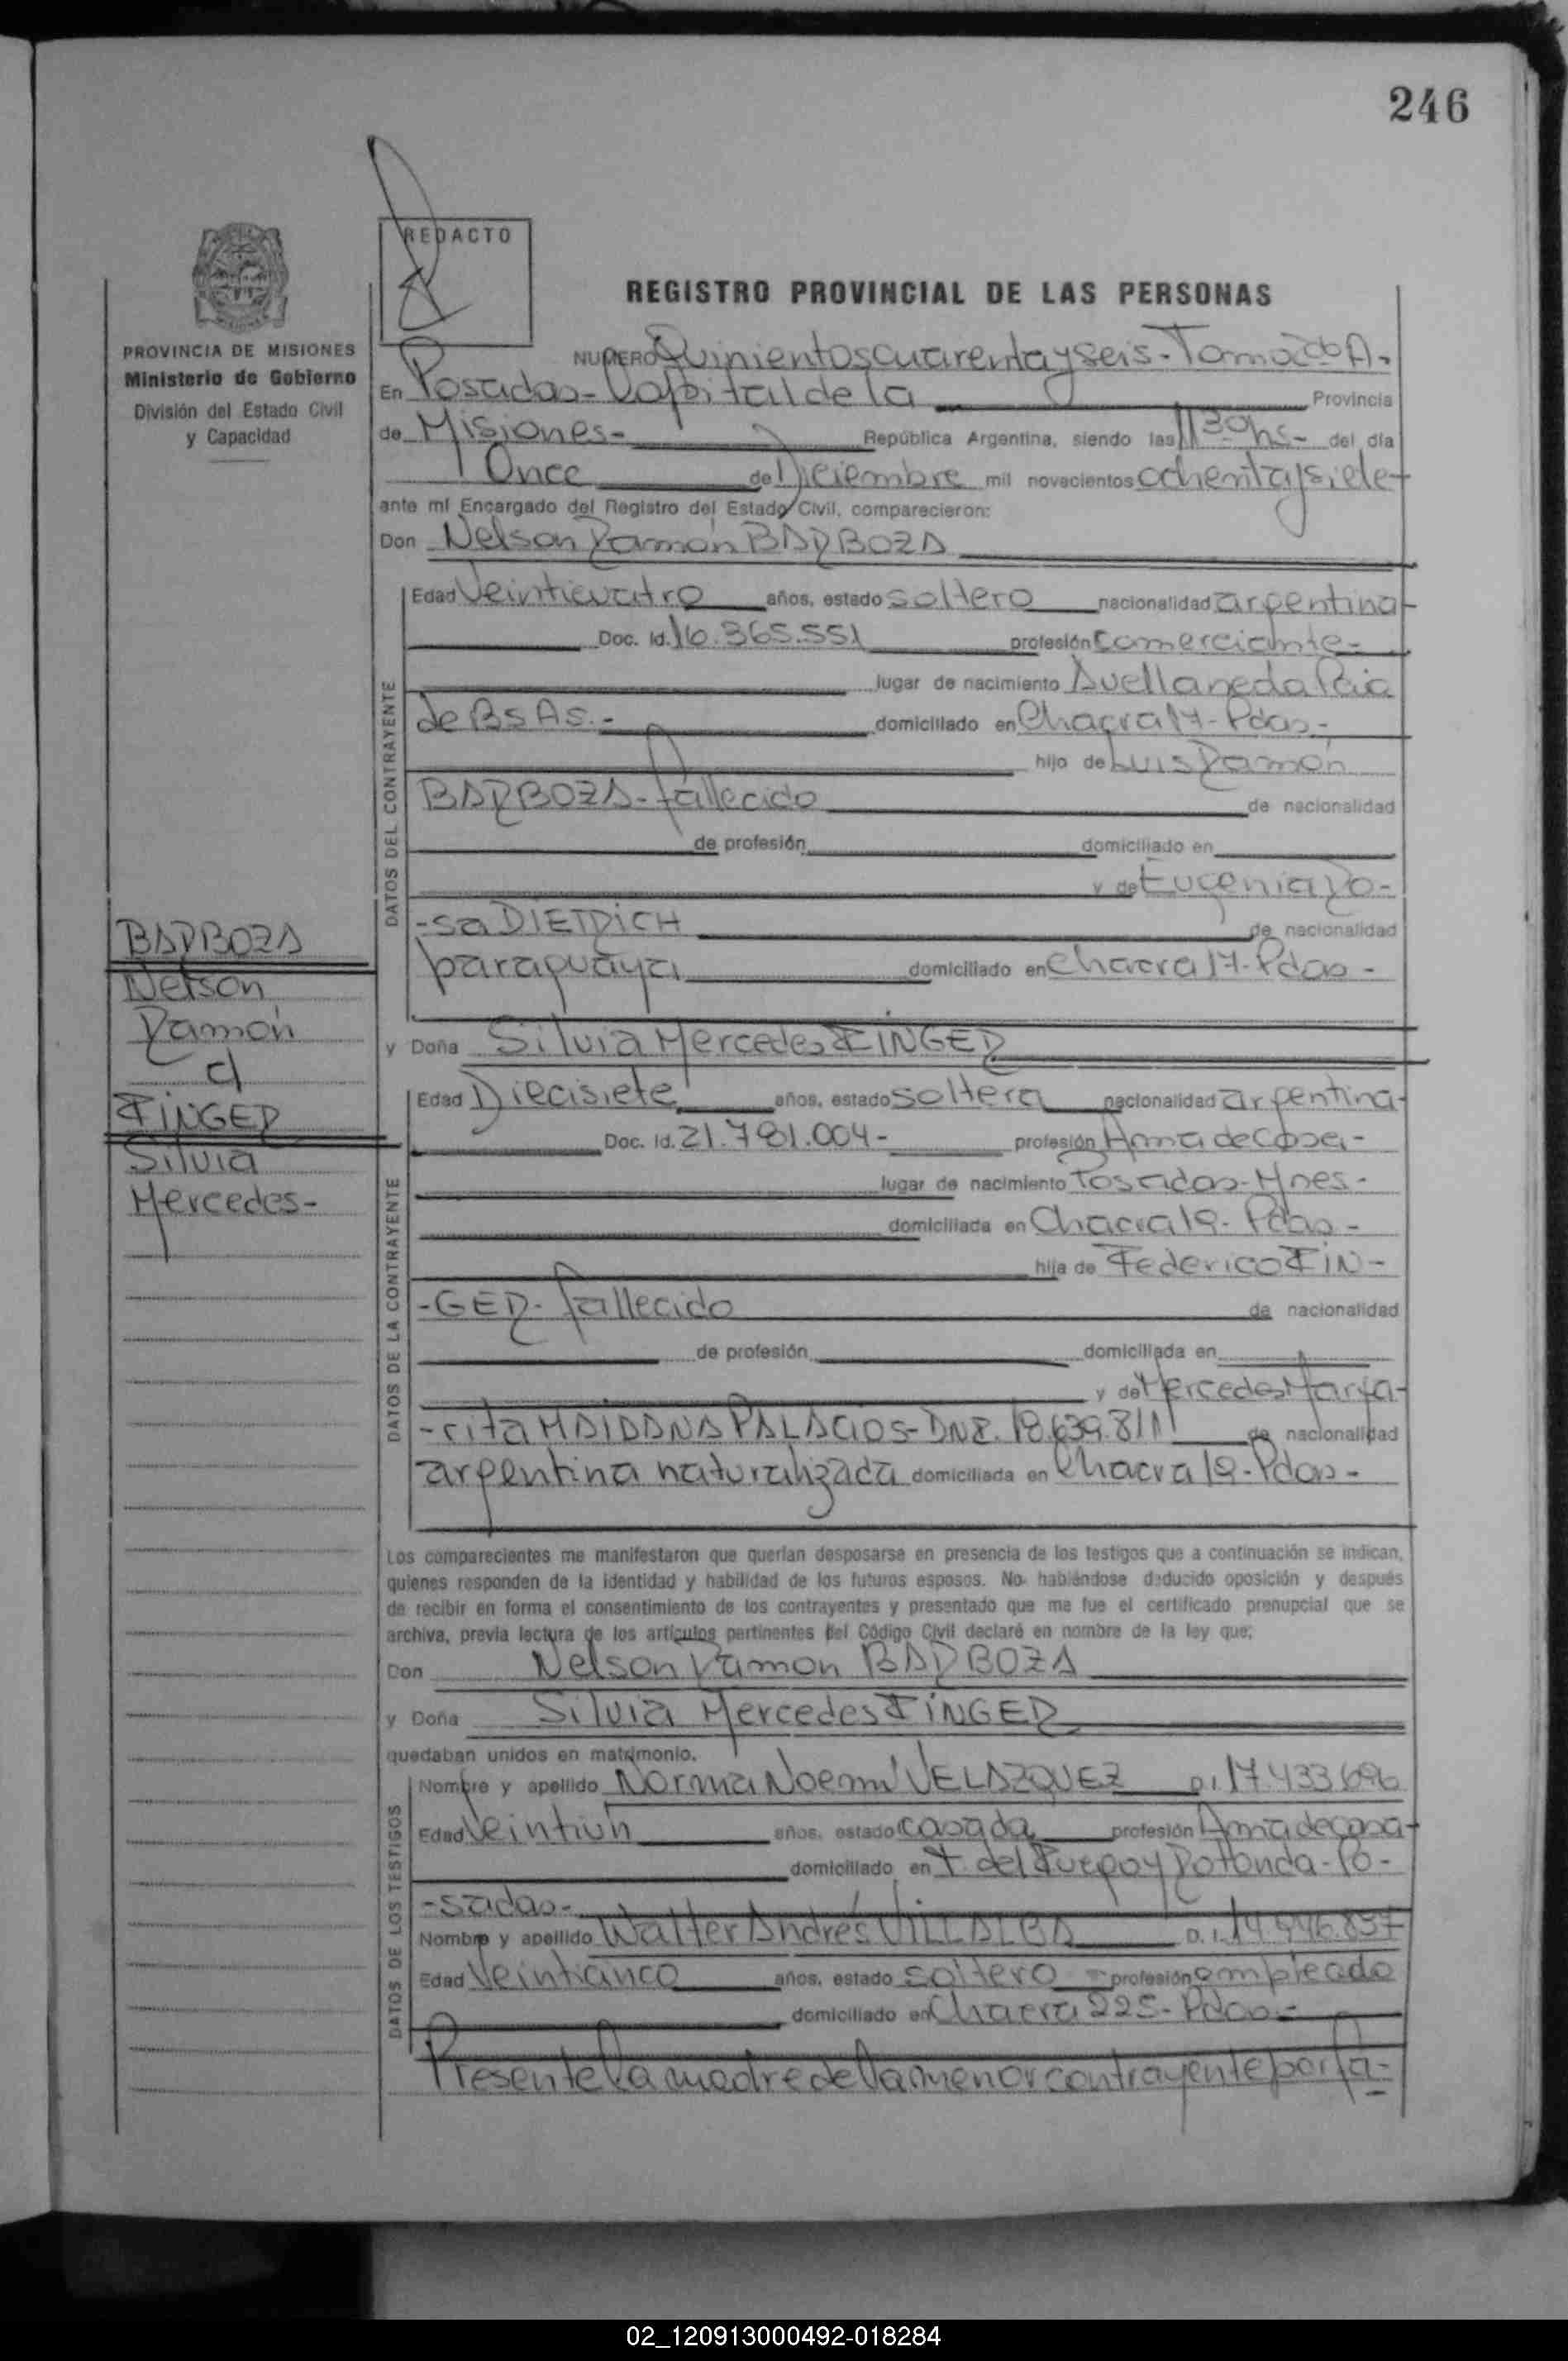 246
REDACTO
REGISTRO PROVINCIAL DE LAS PERSONAS
PROVINCIA DE MISIONES
Ministerio de Gobierno
División del Estado Civil
y Capacidad
NUMERO Quinientos cuarenta y seis - Tomo 2do A.
En Posadas - Capital de la Provincia
de Misiones - República Argentina, siendo las 11 30 hs - del día
Once de Diciembre mil novecientos ochenta y siete
ante mí Encargado del Registro del Estado Civil, comparecieron:
Don Nelson Ramón BARBOZA
DATOS DEL CONTRAYENTE
Edad Veinticuatro años, estado soltero nacionalidad argentina
Doc. Id. 16.365.551 profesión comerciante -
lugar de nacimiento Avellaneda Pcia
de Bs As. - domiciliado en Chacra 17 - Pdas -
hijo de Luis Ramón
BARBOZA - fallecido de nacionalidad
de profesión domiciliado en
y de Eugenia Ro-
-sa DIETRICH de nacionalidad
paraguaya domiciliado en Chacra 17 - Pdas -
BARBOZA
Nelson
Ramón
c/
FINGER
Silvia
Mercedes -
y Doña Silvia Mercedes FINGER
DATOS DE LA CONTRAYENTE
Edad Diecisiete años, estado soltera nacionalidad argentina
Doc. Id. 21.781.004 - profesión Ama de Casa -
lugar de nacimiento Posadas - Mnes -
domiciliada en Chacra 19 - Pdas -
hija de Federico FIN-
-GER - fallecido de nacionalidad
de profesión domiciliada en
y de Mercedes Marga-
-rita MAIDANA PALACIOS - DNI. 18.639.811 de nacionalidad
argentina naturalizada domiciliada en Chacra 19 - Pdas -
Los comparecientes me manifestaron que querían desposarse en presencia de los testigos que a continuación se indican,
quienes responden de la identidad y habilidad de los futuros esposos. No habiéndose deducido oposición y después
de recibir en forma el consentimiento de los contrayentes y presentado que me fue el certificado prenupcial que se
archiva, previa lectura de los artículos pertinentes del Código Civil declaré en nombre de la ley que;
Don Nelson Ramon BARBOZA
y Doña Silvia Mercedes FINGER
quedaban unidos en matrimonio.
DATOS DE LOS TESTIGOS
Nombre y apellido Norma Noemi VELAZQUEZ D.I. 17.433.696
Edad Veintiun años, estado casada profesión Ama de casa
domiciliado en F. del Fuego y Rotonda - Po-
-sadas -
Nombre y apellido Walter Andrés VILLALBA D.I. 14.946.837
Edad Veinticinco años, estado soltero - profesión empleado
domiciliado en Chacra 225 - Pdas -
Presente la madre de la menor contrayente por fa-
02_120913000492-018284